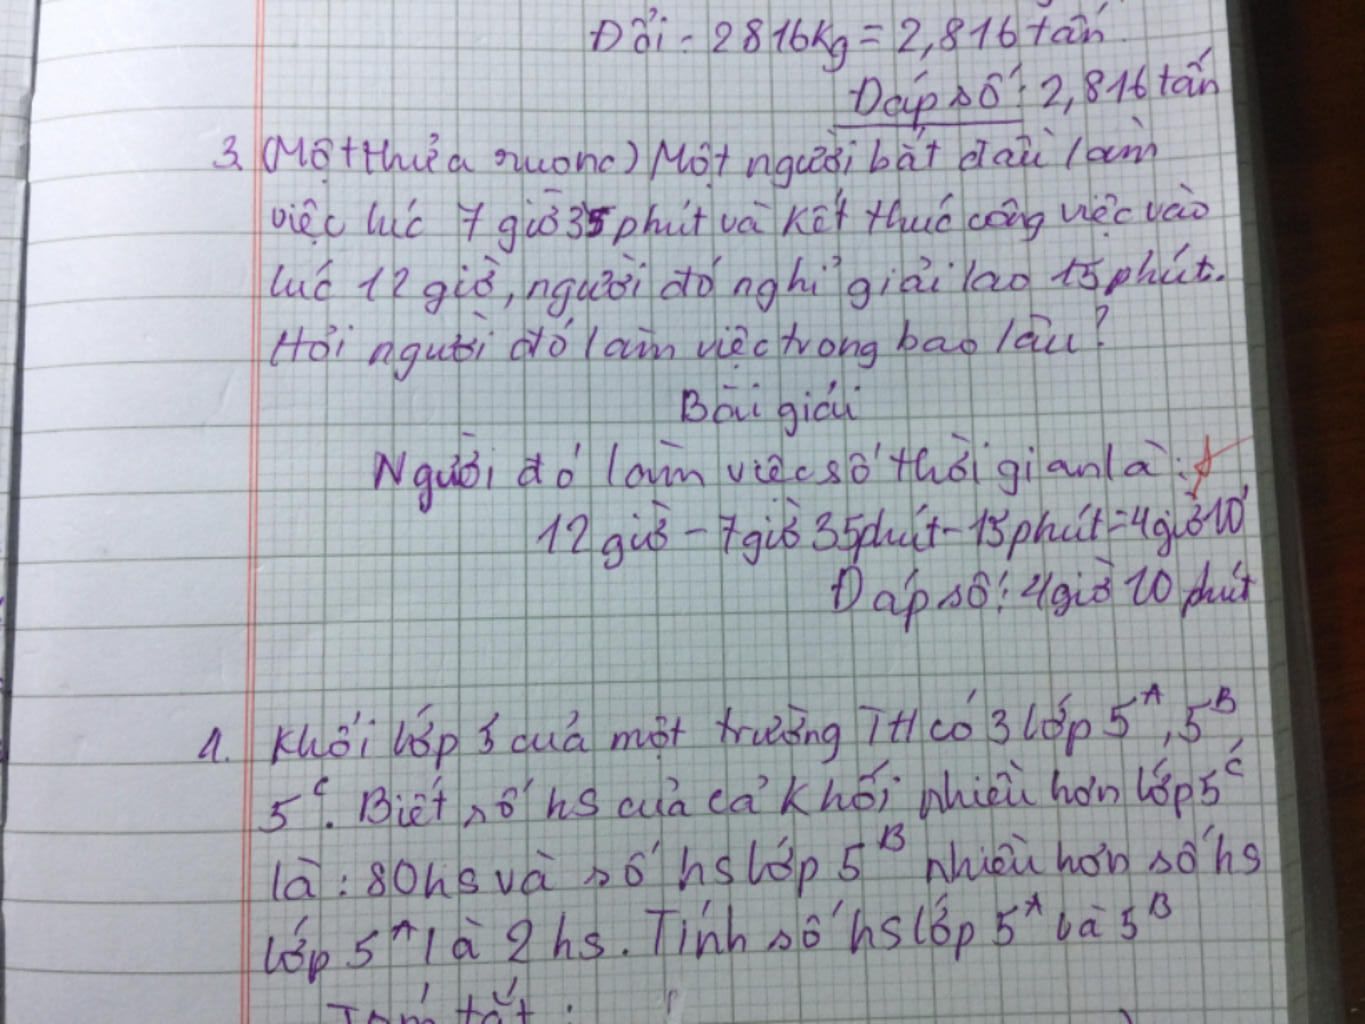 Đổi: 2816kg = 2,816 tấn
Đáp số: 2,816 tấn
3. (Một thửa ruong) Một người bắt đầu làm
việc lúc 7 giờ 35 phút và kết thúc công việc vào
lúc 12 giờ, người đó nghỉ giải lao 15 phút.
Hỏi người đó làm việc trong bao lâu?
Bài giải
Người đó làm việc số thời gian là:
12 giờ - 7 giờ 35 phút - 15 phút = 4 giờ 10'
Đáp số: 4 giờ 10 phút
1. Khối lớp 5 của một trường TH có 3 lớp 5A, 5B,
5C. Biết số hs của cả khối nhiều hơn lớp 5C
là: 80 hs và số hs lớp 5B nhiều hơn số hs
lớp 5A là 2 hs. Tính số hs lớp 5A và 5B
Tóm tắt: